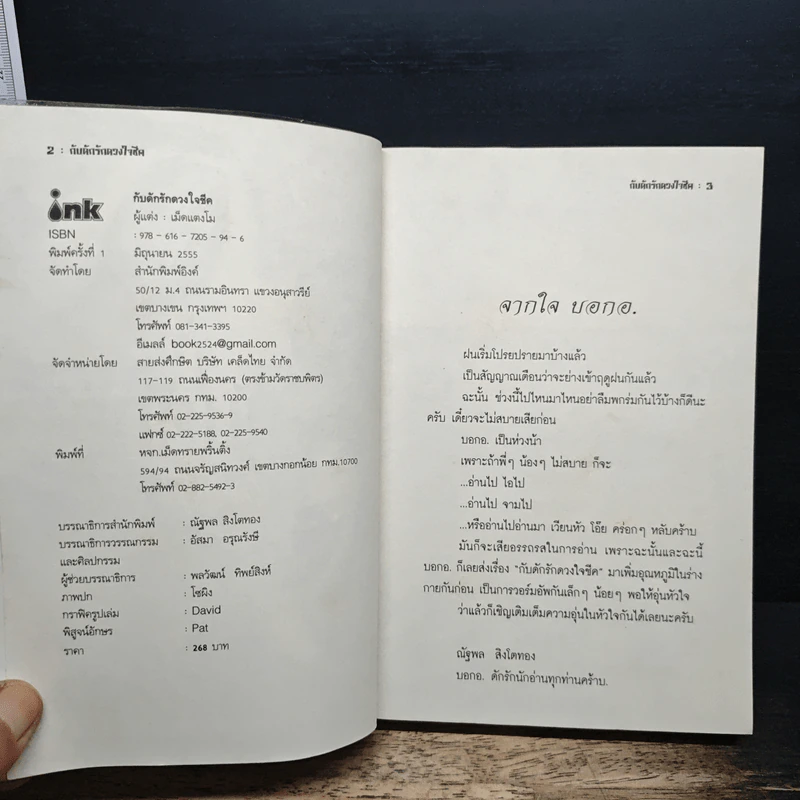 22
2 : กับดักรักดวงใจชีค
ink
กับดักรักดวงใจชีค
ผู้แต่ง : เม็ดแตงโม
ISBN : 978 - 616 - 7205 - 94 - 6
พิมพ์ครั้งที่ 1 มิถุนายน 2555
จัดทำโดย สำนักพิมพ์อิงค์
50/12 ม.4 ถนนรามอินทรา แขวงอนุสาวรีย์
เขตบางเขน กรุงเทพฯ 10220
โทรศัพท์ 081-341-3395
อีเมลล์ book2524@gmail.com
จัดจำหน่ายโดย สายส่งศึกษิต บริษัท เคล็ดไทย จำกัด
117-119 ถนนเฟื่องนคร (ตรงข้ามวัดราชบพิตร)
เขตพระนคร กทม. 10200
โทรศัพท์ 02-225-9536-9
แฟกซ์ 02-222-5188, 02-225-9540
พิมพ์ที่ หจก.เม็ดทรายพริ้นติ้ง
594/94 ถนนจรัญสนิทวงศ์ เขตบางกอกน้อย กทม.10700
โทรศัพท์ 02-882-5492-3
บรรณาธิการสำนักพิมพ์ : ณัฐพล สิงโตทอง
บรรณาธิการวรรณกรรม : อัสมา อรุณรังษี
และศิลปกรรม
ผู้ช่วยบรรณาธิการ : พลวัฒน์ ทิพย์สิงห์
ภาพปก : โซผิง
กราฟิครูปเล่ม : David
พิสูจน์อักษร : Pat
ราคา : 268 บาท
กับดักรักดวงใจชีค : 3
จากใจ บอกอ.
ฝนเริ่มโปรยปรายมาบ้างแล้ว
เป็นสัญญาณเตือนว่าจะย่างเข้าฤดูฝนกันแล้ว
ฉะนั้น ช่วงนี้ไปไหนมาไหนอย่าลืมพกร่มกันไว้บ้างก็ดีนะ
ครับ เดี๋ยวจะไม่สบายเสียก่อน
บอกอ. เป็นห่วงน้า
เพราะถ้าพี่ๆ น้องๆ ไม่สบาย ก็จะ
...อ่านไป ไอไป
...อ่านไป จามไป
...หรืออ่านไปอ่านมา เวียนหัว โอ๊ย คร่อกๆ หลับคร้าบ
มันก็จะเสียอรรถรสในการอ่าน เพราะฉะนั้นและฉะนี้
บอกอ. ก็เลยส่งเรื่อง "กับดักรักดวงใจชีค" มาเพิ่มอุณหภูมิในร่าง
กายกันก่อน เป็นการวอร์มอัพกันเล็กๆ น้อยๆ พอให้อุ่นหัวใจ
ว่าแล้วก็เชิญเติมเต็มความอุ่นในหัวใจกันได้เลยนะครับ
ณัฐพล สิงโตทอง
บอกอ. ดักรักนักอ่านทุกท่านคร้าบ.